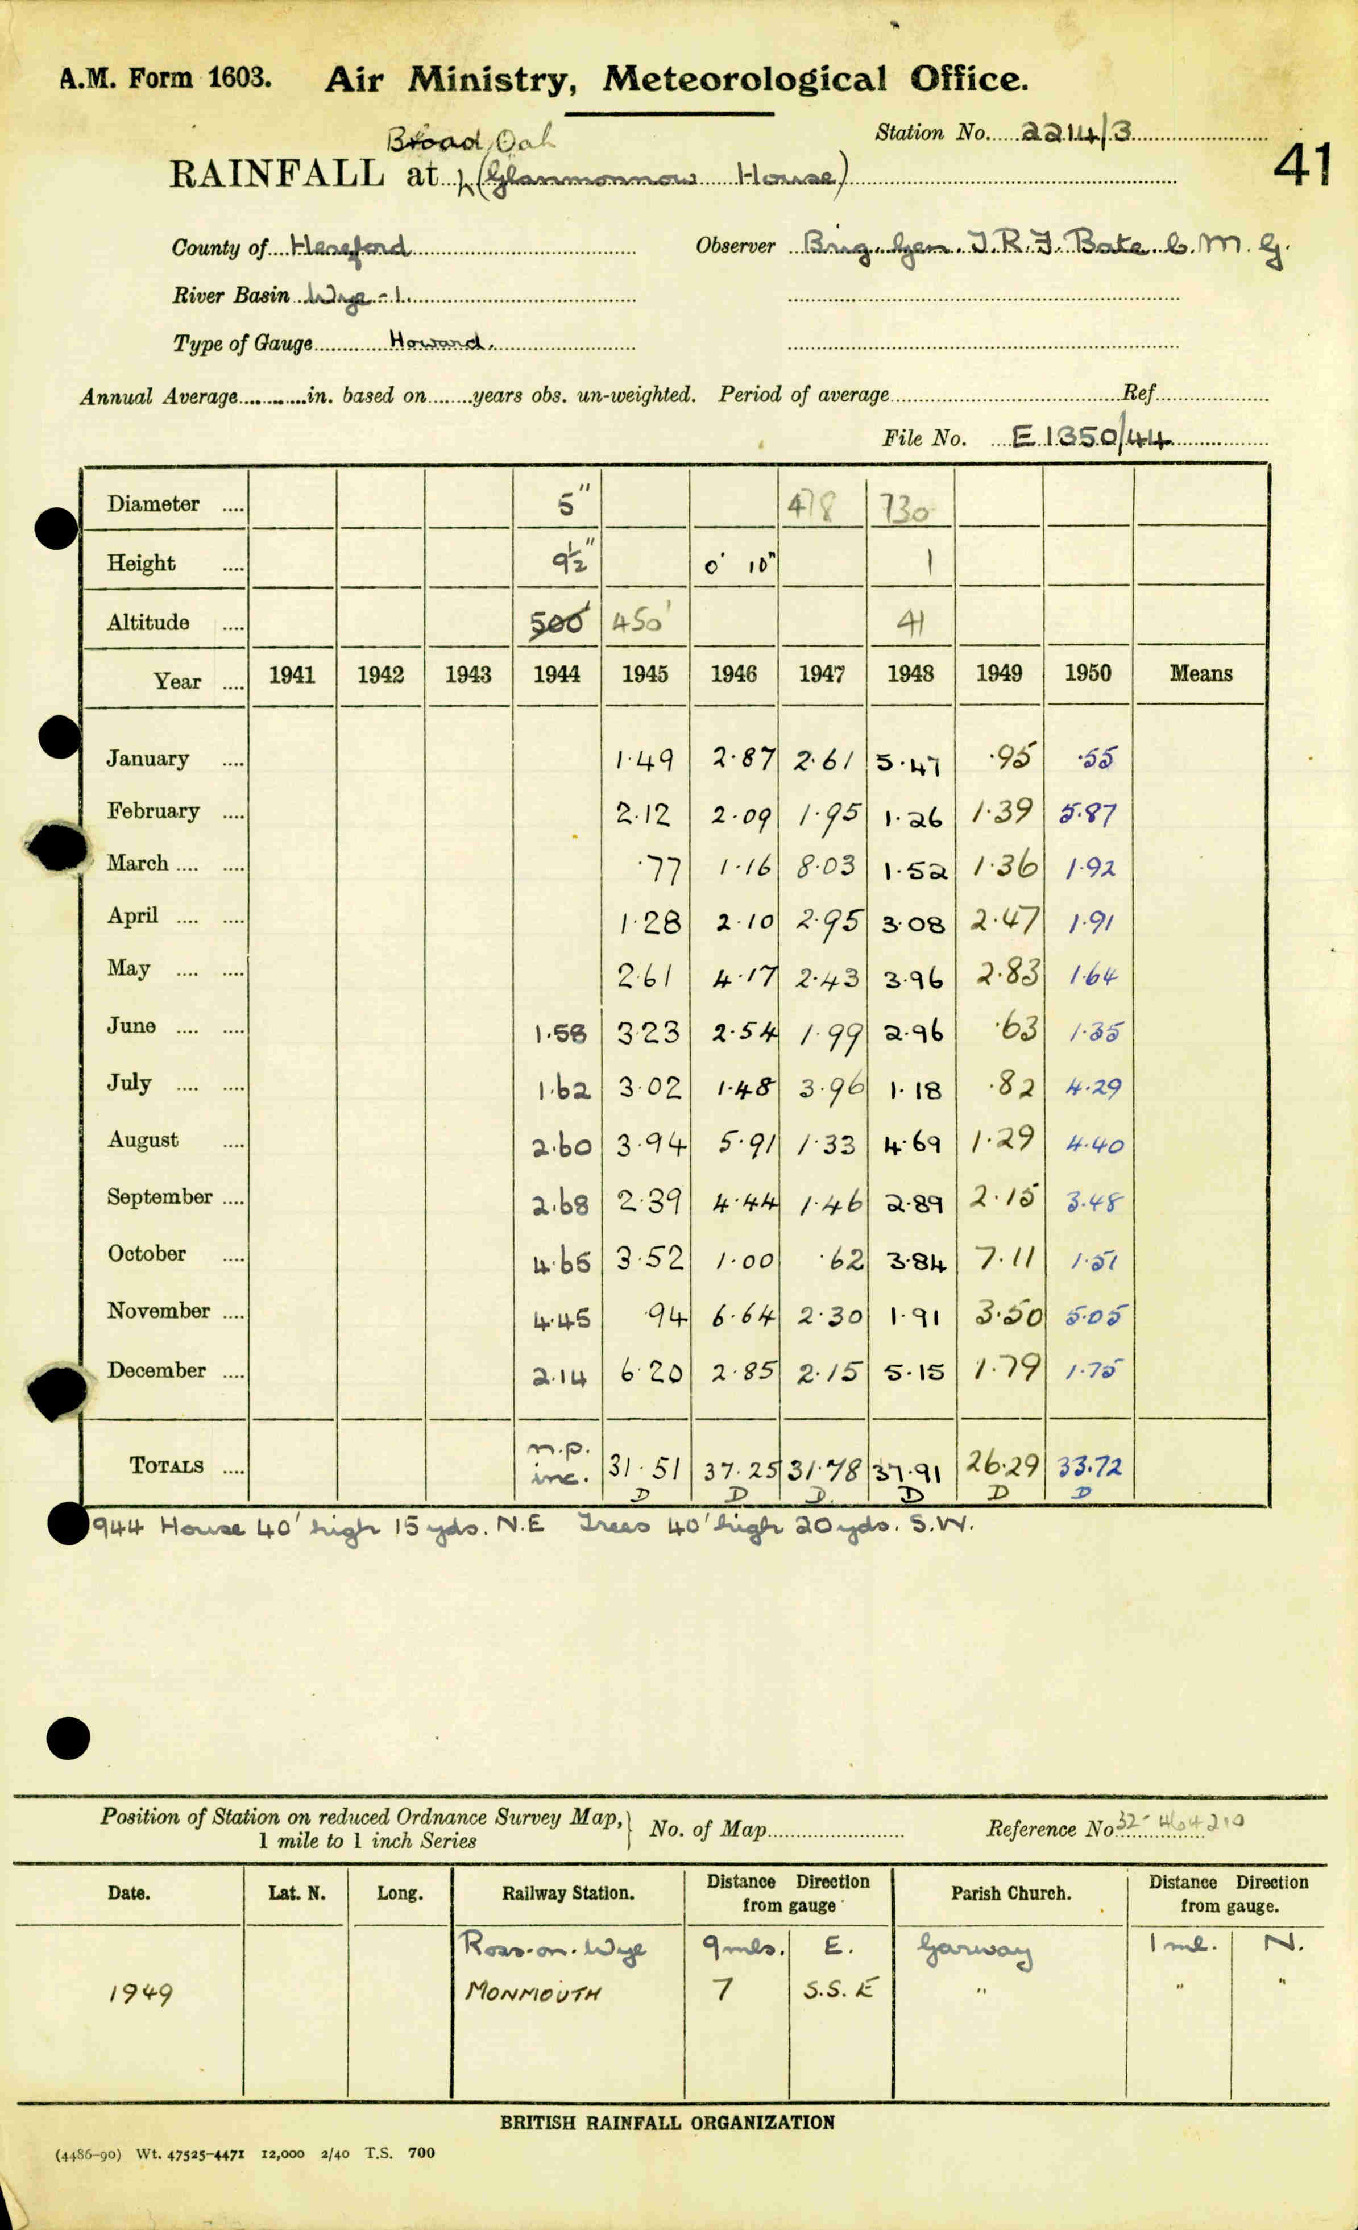 A.M. Form 1603. Air Ministry, Meteorological Office.
Station No. 2214/3
41
Broad Oak
RAINFALL at (Glanmonnow House)
County of Hereford Observer Brig. Gen. T.R.F. Bate C.M.G.
River Basin Wye - 1.
Type of Gauge Howard.
Annual Average in. based on years obs. un-weighted. Period of average Ref
File No. E 1350/44
Diameter 5" 478 730
Height 9½" 0' 10" 1
Altitude 500' 450' 41
Year 1941 1942 1943 1944 1945 1946 1947 1948 1949 1950 Means
January 1.49 2.87 2.61 5.47 .95 .55
February 2.12 2.09 1.95 1.26 1.39 5.87
March .77 1.16 8.03 1.52 1.36 1.92
April 1.28 2.10 2.95 3.08 2.47 1.91
May 2.61 4.17 2.43 3.96 2.83 1.64
June 1.58 3.23 2.54 1.99 2.96 .63 1.35
July 1.62 3.02 1.48 3.96 1.18 .82 4.29
August 2.60 3.94 5.91 1.33 4.69 1.29 4.40
September 2.68 2.39 4.44 1.46 2.89 2.15 3.48
October 4.65 3.52 1.00 .62 3.84 7.11 1.51
November 4.45 .94 6.64 2.30 1.91 3.50 5.05
December 2.14 6.20 2.85 2.15 5.15 1.79 1.75
TOTALS n.p. inc. 31.51 37.25 31.78 37.91 26.29 33.72
D D D D D D
944 House 40' high 15 yds. N.E Trees 40' high 20 yds. S.W.
Position of Station on reduced Ordnance Survey Map, 1 mile to 1 inch Series } No. of Map Reference No 32-464210
Date. Lat. N. Long. Railway Station. Distance Direction from gauge Parish Church. Distance Direction from gauge.
Ross-on-Wye 9 mls. E. Garway 1 ml. N.
1949 MONMOUTH 7 S.S.E " " "
BRITISH RAINFALL ORGANIZATION
(4486-90) Wt. 47525-4471 12,000 2/40 T.S. 700